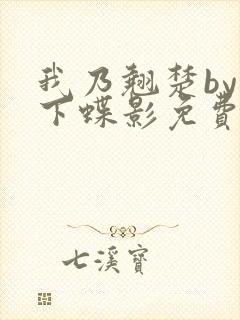 我乃翘楚by
下蝶影免費
七溪寶